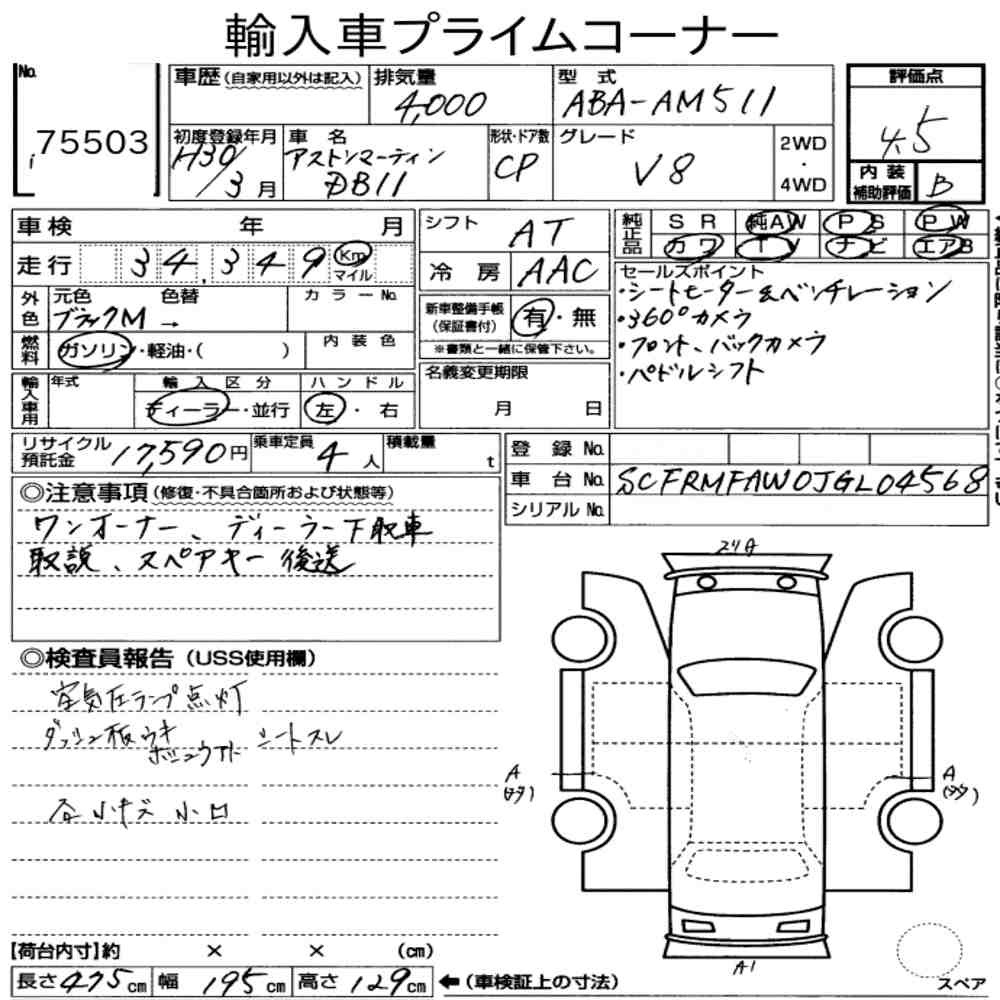 輸入車プライムコーナー
No.
75503
車歴 (自家用以外は記入)
排気量
4,000
型 式
ABA-AM511
評価点
4.5
初度登録年月
H30/3月
車 名
アストンマーティン
DB11
形状・ドア数
CP
グレード
V8
2WD
・
4WD
内 装
補助評価
B
車検 年 月
走行 34,349 Km
マイル
シフト AT
冷 房 AAC
純正品 SR 純AW PS PW
カワ TV ナビ エアB
外色 元色 色替 カラーNo.
ブラックM →
燃料 ガソリン・軽油・( ) 内装色
新車整備手帳
(保証書付)
有・無
※書類と一緒に保管下さい。
セールスポイント
・シートヒーター&ベンチレーション
・360°カメラ
・フロント、バックカメラ
・パドルシフト
輸入車用 年式 輸入区分 ハンドル
ディーラー・並行 左・右
名義変更期限
月 日
リサイクル
預託金
17,590円
乗車定員 4人
積載量 t
登録 No.
車台 No. SCFRMFAW0JGL04568
シリアル No.
◎注意事項 (修復・不具合箇所および状態等)
ワンオーナー、ディーラー下取車
取説、スペアキー後送
◎検査員報告 (USS使用欄)
空気圧ランプ点灯
ダッシュ板ウキ
シートスレ
小キズ 小凹
A
A
A1
【荷台内寸】約 × × (cm)
長さ475cm 幅195cm 高さ129cm ←(車検証上の寸法)
スペア